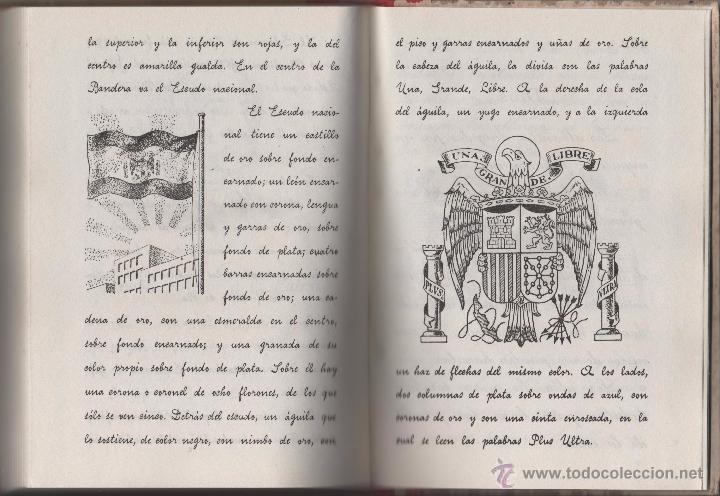 la superior y la inferior son rojas, y la del
centro es amarilla gualda. En el centro de la
Bandera va el Escudo nacional.
El Escudo nacio-
nal tiene un castillo
de oro sobre fondo en-
carnado; un león encar-
nado con corona, lengua
y garras de oro, sobre
fondo de plata; cuatro
barras encarnadas sobre
fondo de oro; una ca-
dena de oro, con una esmeralda en el centro,
sobre fondo encarnado; y una granada de su
color propio sobre fondo de plata. Sobre él hay
una corona o coronel de ocho florones, de los que
sólo se ven cinco. Detrás del escudo, un águila que
lo sostiene, de color negro, con nimbo de oro, con
el pico y garras encarnados y uñas de oro. Sobre
la cabeza del águila, la divisa con las palabras
Una, Grande, Libre. A la derecha de la cola
del águila, un yugo encarnado, y a la izquierda
UNA GRANDE LIBRE
PLUS ULTRA
un haz de flechas del mismo color. A los lados,
dos columnas de plata sobre ondas de azul, con
coronas de oro y con una cinta enroscada, en la
cual se leen las palabras Plus Ultra.
todocoleccion
www.todocoleccion.net